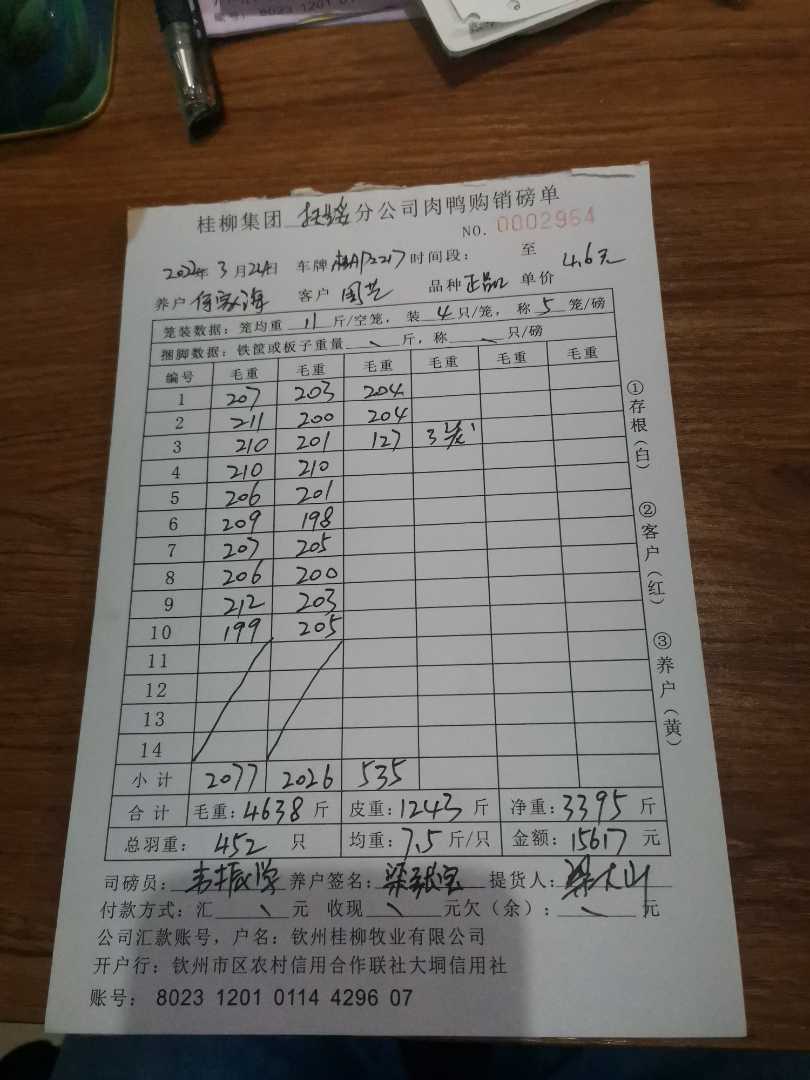 8023 1201 01
桂柳集团 分公司肉鸭购销磅单
NO. 0002964
2022年 3月24日 车牌 时间段： 至
养户 客户 品种 正品 单价 4.6元
笼装数据：笼均重 11 斤/空笼，装 4 只/笼，称 5 笼/磅
捆脚数据：铁筐或板子重量 斤，称 只/磅
编号 毛重 毛重 毛重 毛重 毛重 毛重
1 207 203 204
2 211 200 204
3 210 201 127 3笼
4 210 210
5 206 201
6 209 198
7 207 205
8 206 200
9 212 203
10 199 205
11
12
13
14
小计 2077 2026 535
合计 毛重：4638 斤 皮重：1243 斤 净重：3395 斤
总羽重： 452 只 均重：7.5 斤/只 金额：15617 元
司磅员： 韦振学 养户签名： 提货人：
付款方式：汇 元 收现 元欠（余）： 元
公司汇款账号，户名：钦州桂柳牧业有限公司
开户行：钦州市区农村信用合作联社大垌信用社
账号： 8023 1201 0114 4296 07
①存根（白）
②客户（红）
③养户（黄）